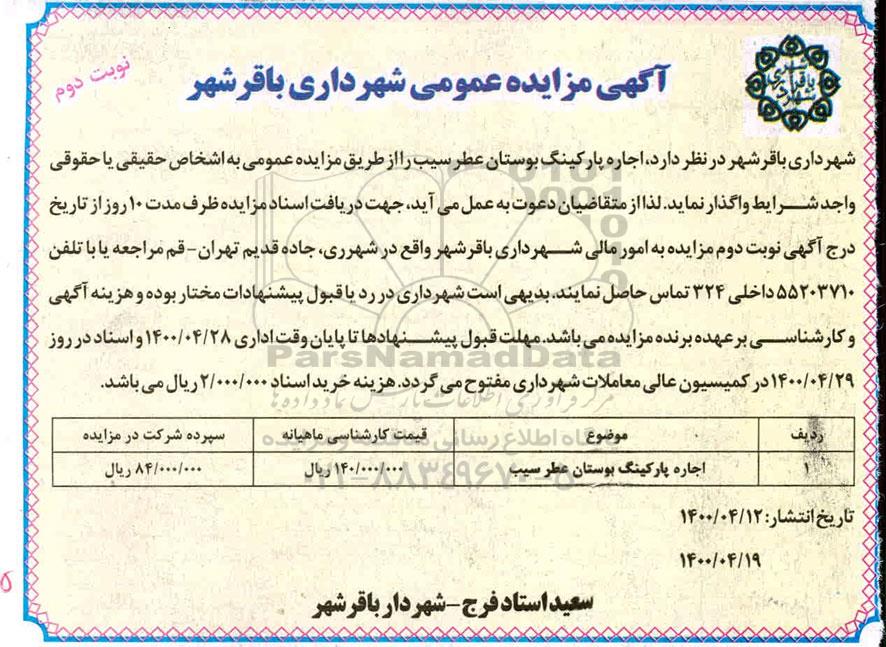 نوبت دوم
آگهی مزایده عمومی شهرداری باقرشهر
شهرداری باقرشهر در نظر دارد، اجاره پارکینگ بوستان عطر سیب را از طریق مزایده عمومی به اشخاص حقیقی یا حقوقی
واجد شرایط واگذار نماید. لذا از متقاضیان دعوت به عمل می آید، جهت دریافت اسناد مزایده ظرف مدت ۱۰ روز از تاریخ
درج آگهی نوبت دوم مزایده به امور مالی شهرداری باقرشهر واقع در شهرری، جاده قدیم تهران - قم مراجعه یا با تلفن
۵۵۲۰۳۷۱۰ داخلی ۳۲۴ تماس حاصل نمایند. بدیهی است شهرداری در رد یا قبول پیشنهادات مختار بوده و هزینه آگهی
و کارشناسی بر عهده برنده مزایده می باشد. مهلت قبول پیشنهادها تا پایان وقت اداری ۱۴۰۰/۰۴/۲۸ و اسناد در روز
۱۴۰۰/۰۴/۲۹ در کمیسیون عالی معاملات شهرداری مفتوح می گردد. هزینه خرید اسناد ۲/۰۰۰/۰۰۰ ریال می باشد.
ParsNamadData
ردیف موضوع قیمت کارشناسی ماهیانه سپرده شرکت در مزایده
۱ اجاره پارکینگ بوستان عطر سیب ۱۴۰/۰۰۰/۰۰۰ ریال ۸۴/۰۰۰/۰۰۰ ریال
تاریخ انتشار: ۱۴۰۰/۰۴/۱۲
۱۴۰۰/۰۴/۱۹
سعید استاد فرج - شهردار باقرشهر